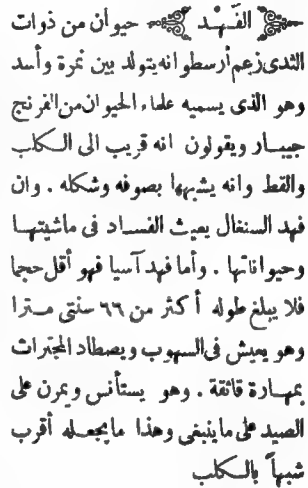 الفَهْد حيوان من ذوات
الثدى زعم أرسطو انه يتولد بين نمرة وأسد
وهو الذى يسميه علماء الحيوان من الفرنج
جيبار ويقولون انه قريب الى الكلب
والقط وانه يشبهها بصوفه وشكله . وان
فهد السنغال يعيث الفساد فى ماشيتها
وحيواناتها . وأما فهد آسيا فهو أقل حجما
فلا يبلغ طوله أكثر من ٦٦ سنتى مترا
وهو يعيش فى السهوب ويصطاد المجترات
بمهارة فائقة . وهو يستأنس ويمرن على
الصيد على ما ينبغى وهذا ما يجعله أقرب
شبهاً بالكلب